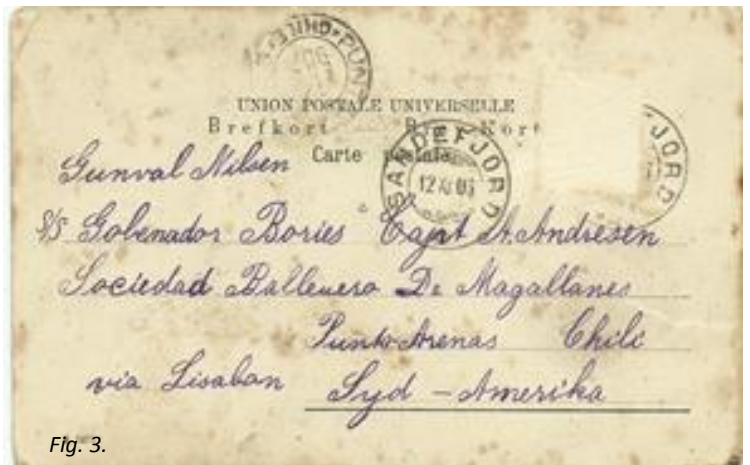 UNION POSTALE UNIVERSELLE
Brefkort
Carte postale
SANDEFJORD
12 XI 06
FJORD
Gunval Nilsen
S/S Gobenador Bories Capt A. Andresen
Sociedad Ballenero De Magallanes
Punto Arenas Chili
via Lisabon Syd – Amerika
Fig. 3.